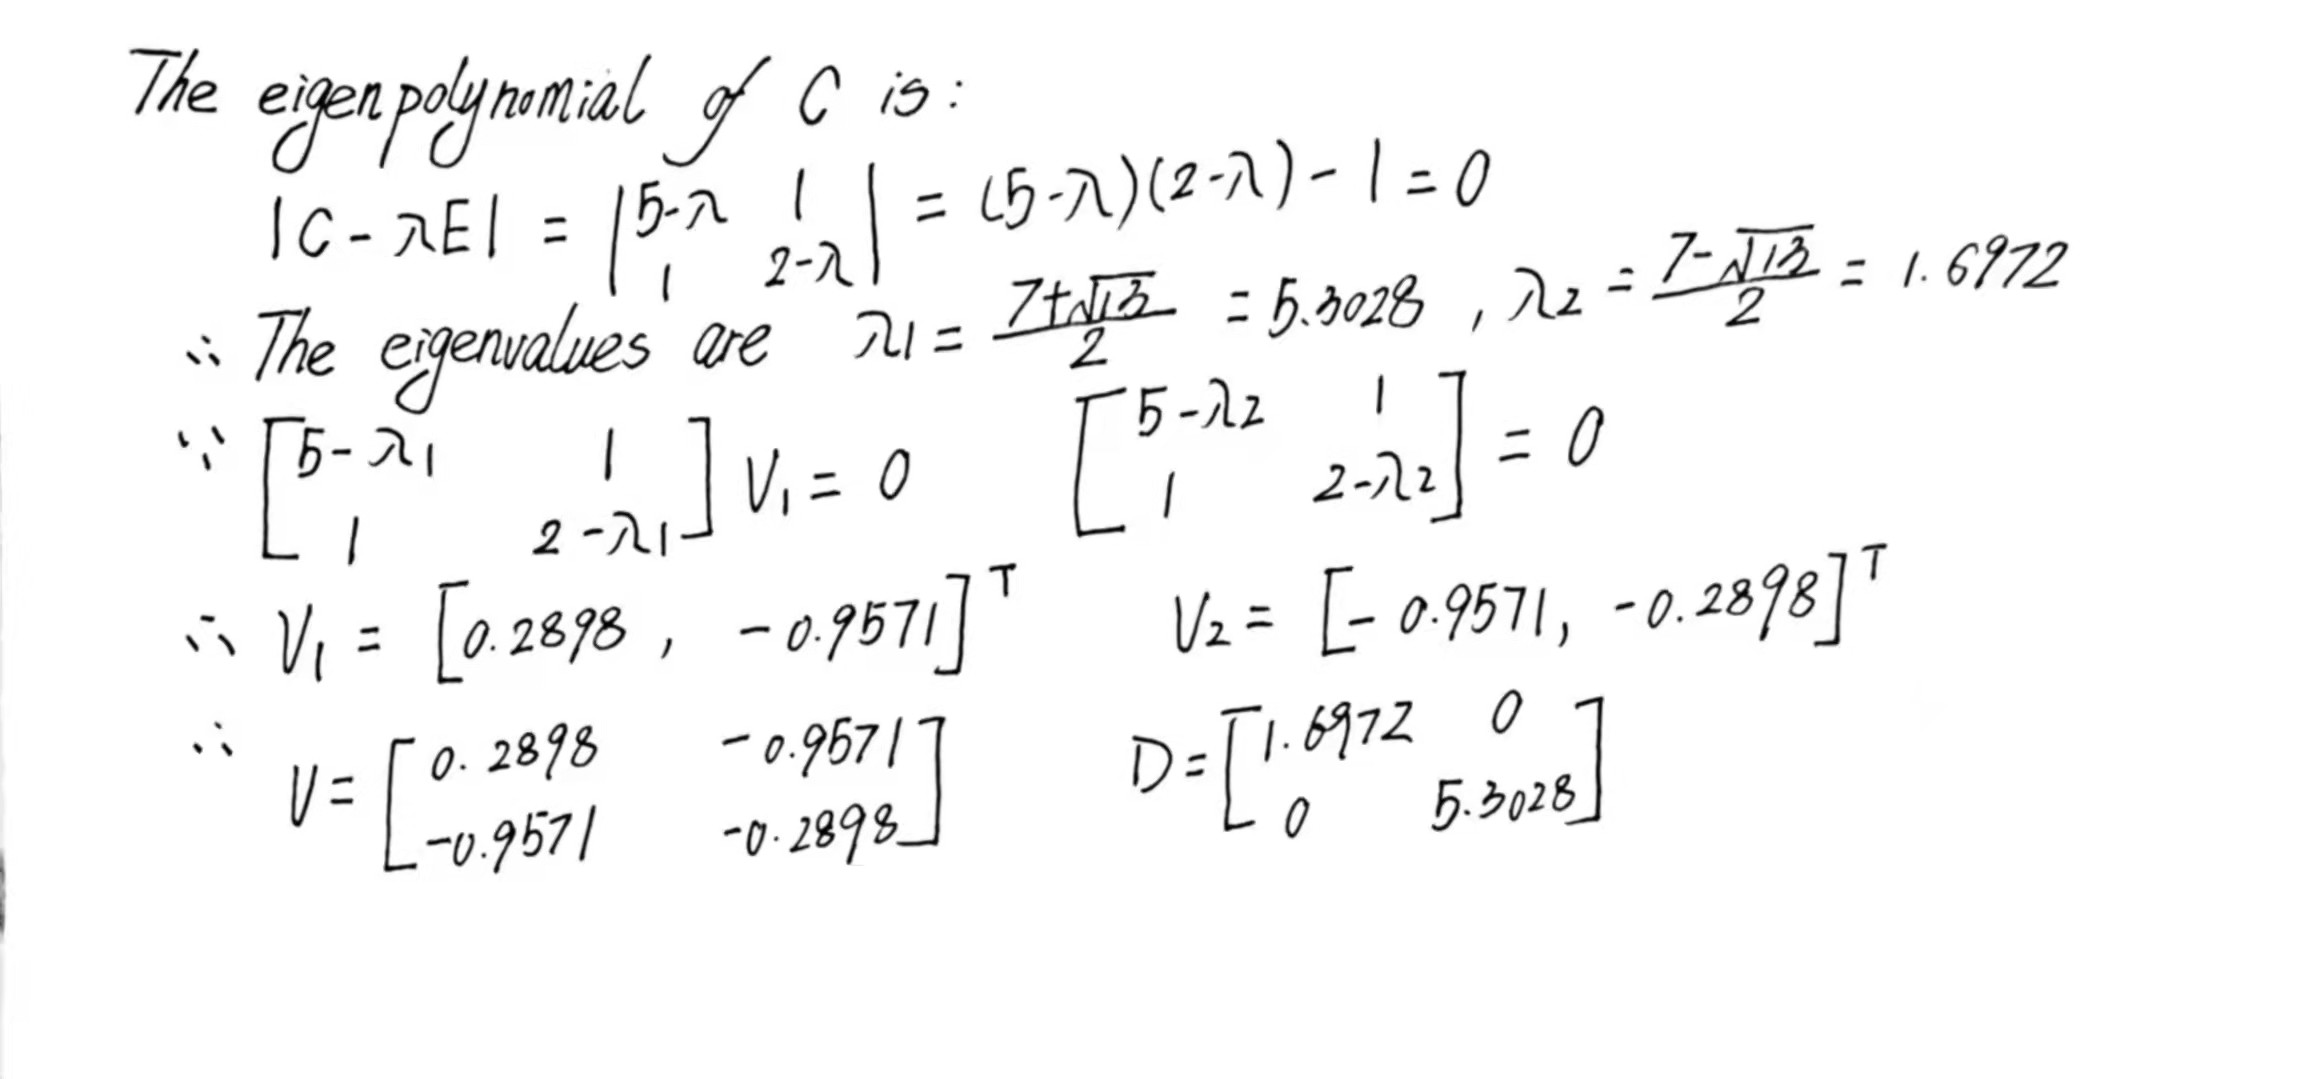 The eigenpolynomial of C is:
|C - λE| = |5-λ 1 1 2-λ| = (5-λ)(2-λ) - 1 = 0
∴ The eigenvalues are λ1 = (7+√13)/2 = 5.3028 , λ2 = (7-√13)/2 = 1.6972
∵ [5-λ1 1 1 2-λ1] V1 = 0 [5-λ2 1 1 2-λ2] = 0
∴ V1 = [0.2898 , -0.9571]ᵀ V2 = [-0.9571, -0.2898]ᵀ
∴ V = [0.2898 -0.9571 -0.9571 -0.2898] D = [1.6972 0 0 5.3028]